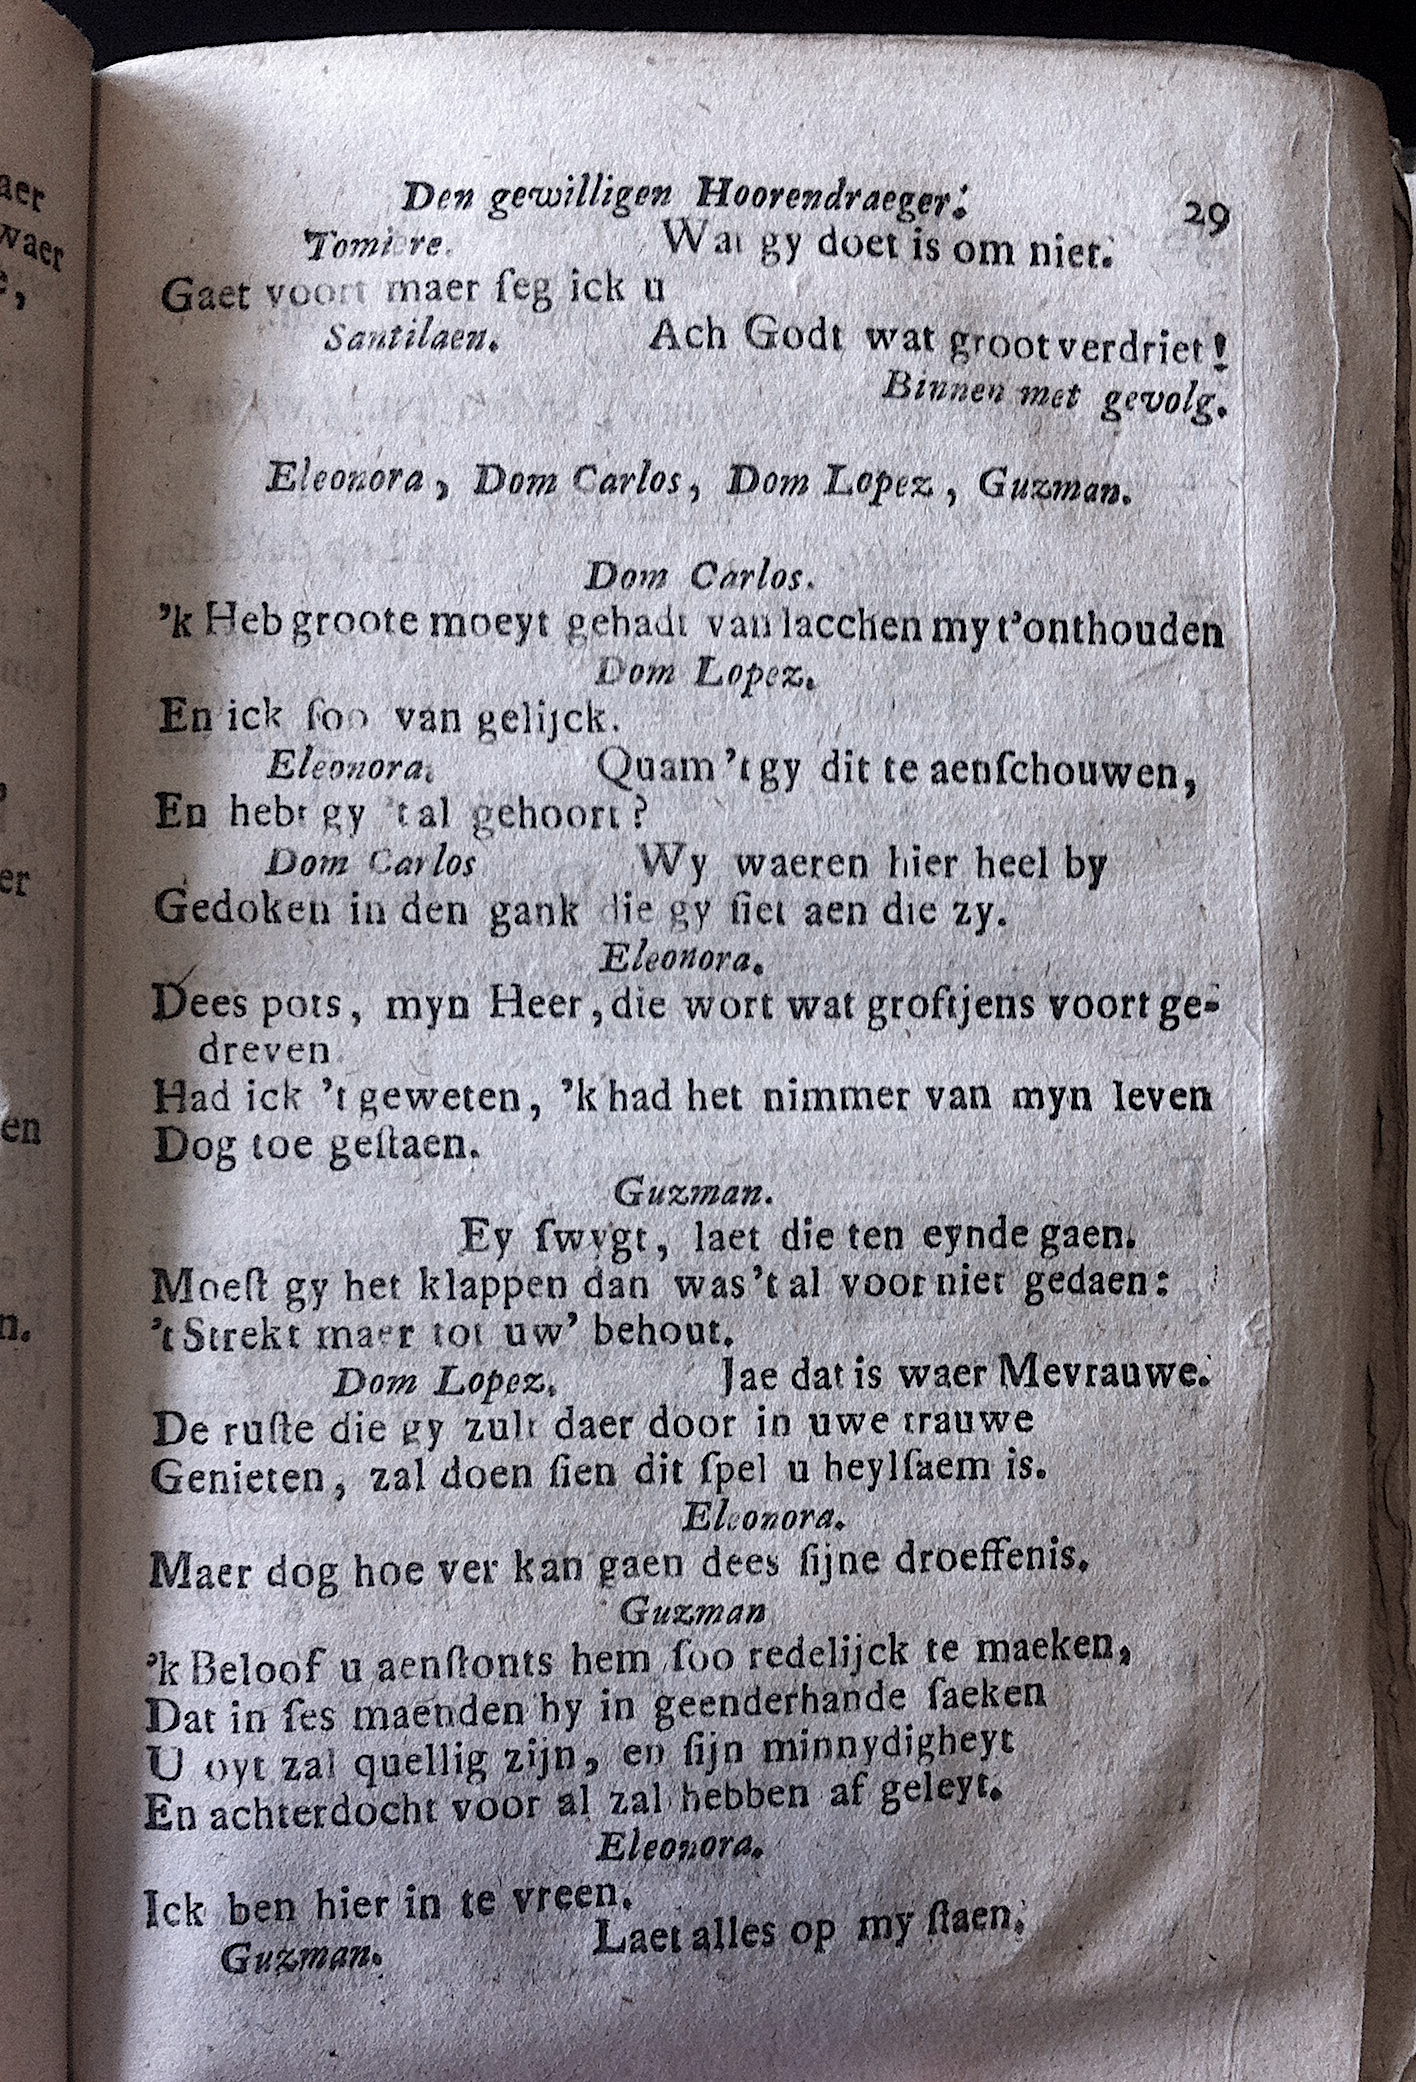 Den gewilligen Hoorendraeger. 29
Tomiere. Wat gy doet is om niet.
Gaet voort maer ſeg ick u
Santilaen. Ach Godt wat groot verdriet!
Binnen met gevolg.
Eleonora, Dom Carlos, Dom Lopez, Guzman.
Dom Carlos.
'k Heb groote moeyt gehadt van lacchen my t'onthouden
Dom Lopez.
En ick ſoo van gelijck.
Eleonora. Quam 't gy dit te aenſchouwen,
En hebt gy 't al gehoort?
Dom Carlos Wy waeren hier heel by
Gedoken in den gank die gy ſiet aen die zy.
Eleonora.
Dees pots, myn Heer, die wort wat groftjens voort ge-
dreven
Had ick 't geweten, 'k had het nimmer van myn leven
Dog toe geſtaen.
Guzman.
Ey ſwygt, laet die ten eynde gaen.
Moeſt gy het klappen dan was 't al voor niet gedaen:
't Strekt maer tot uw' behout.
Dom Lopez. Jae dat is waer Mevrauwe.
De ruſte die gy zult daer door in uwe trauwe
Genieten, zal doen ſien dit ſpel u heylſaem is.
Eleonora.
Maer dog hoe ver kan gaen dees ſijne droeffenis.
Guzman
'k Beloof u aenſtonts hem ſoo redelijck te maeken,
Dat in ſes maenden hy in geenderhande ſaeken
U oyt zal quellig zijn, en ſijn minnydigheyt
En achterdocht voor al zal hebben af geleyt.
Eleonora.
Ick ben hier in te vreen.
Guzman. Laet alles op my ſtaen.